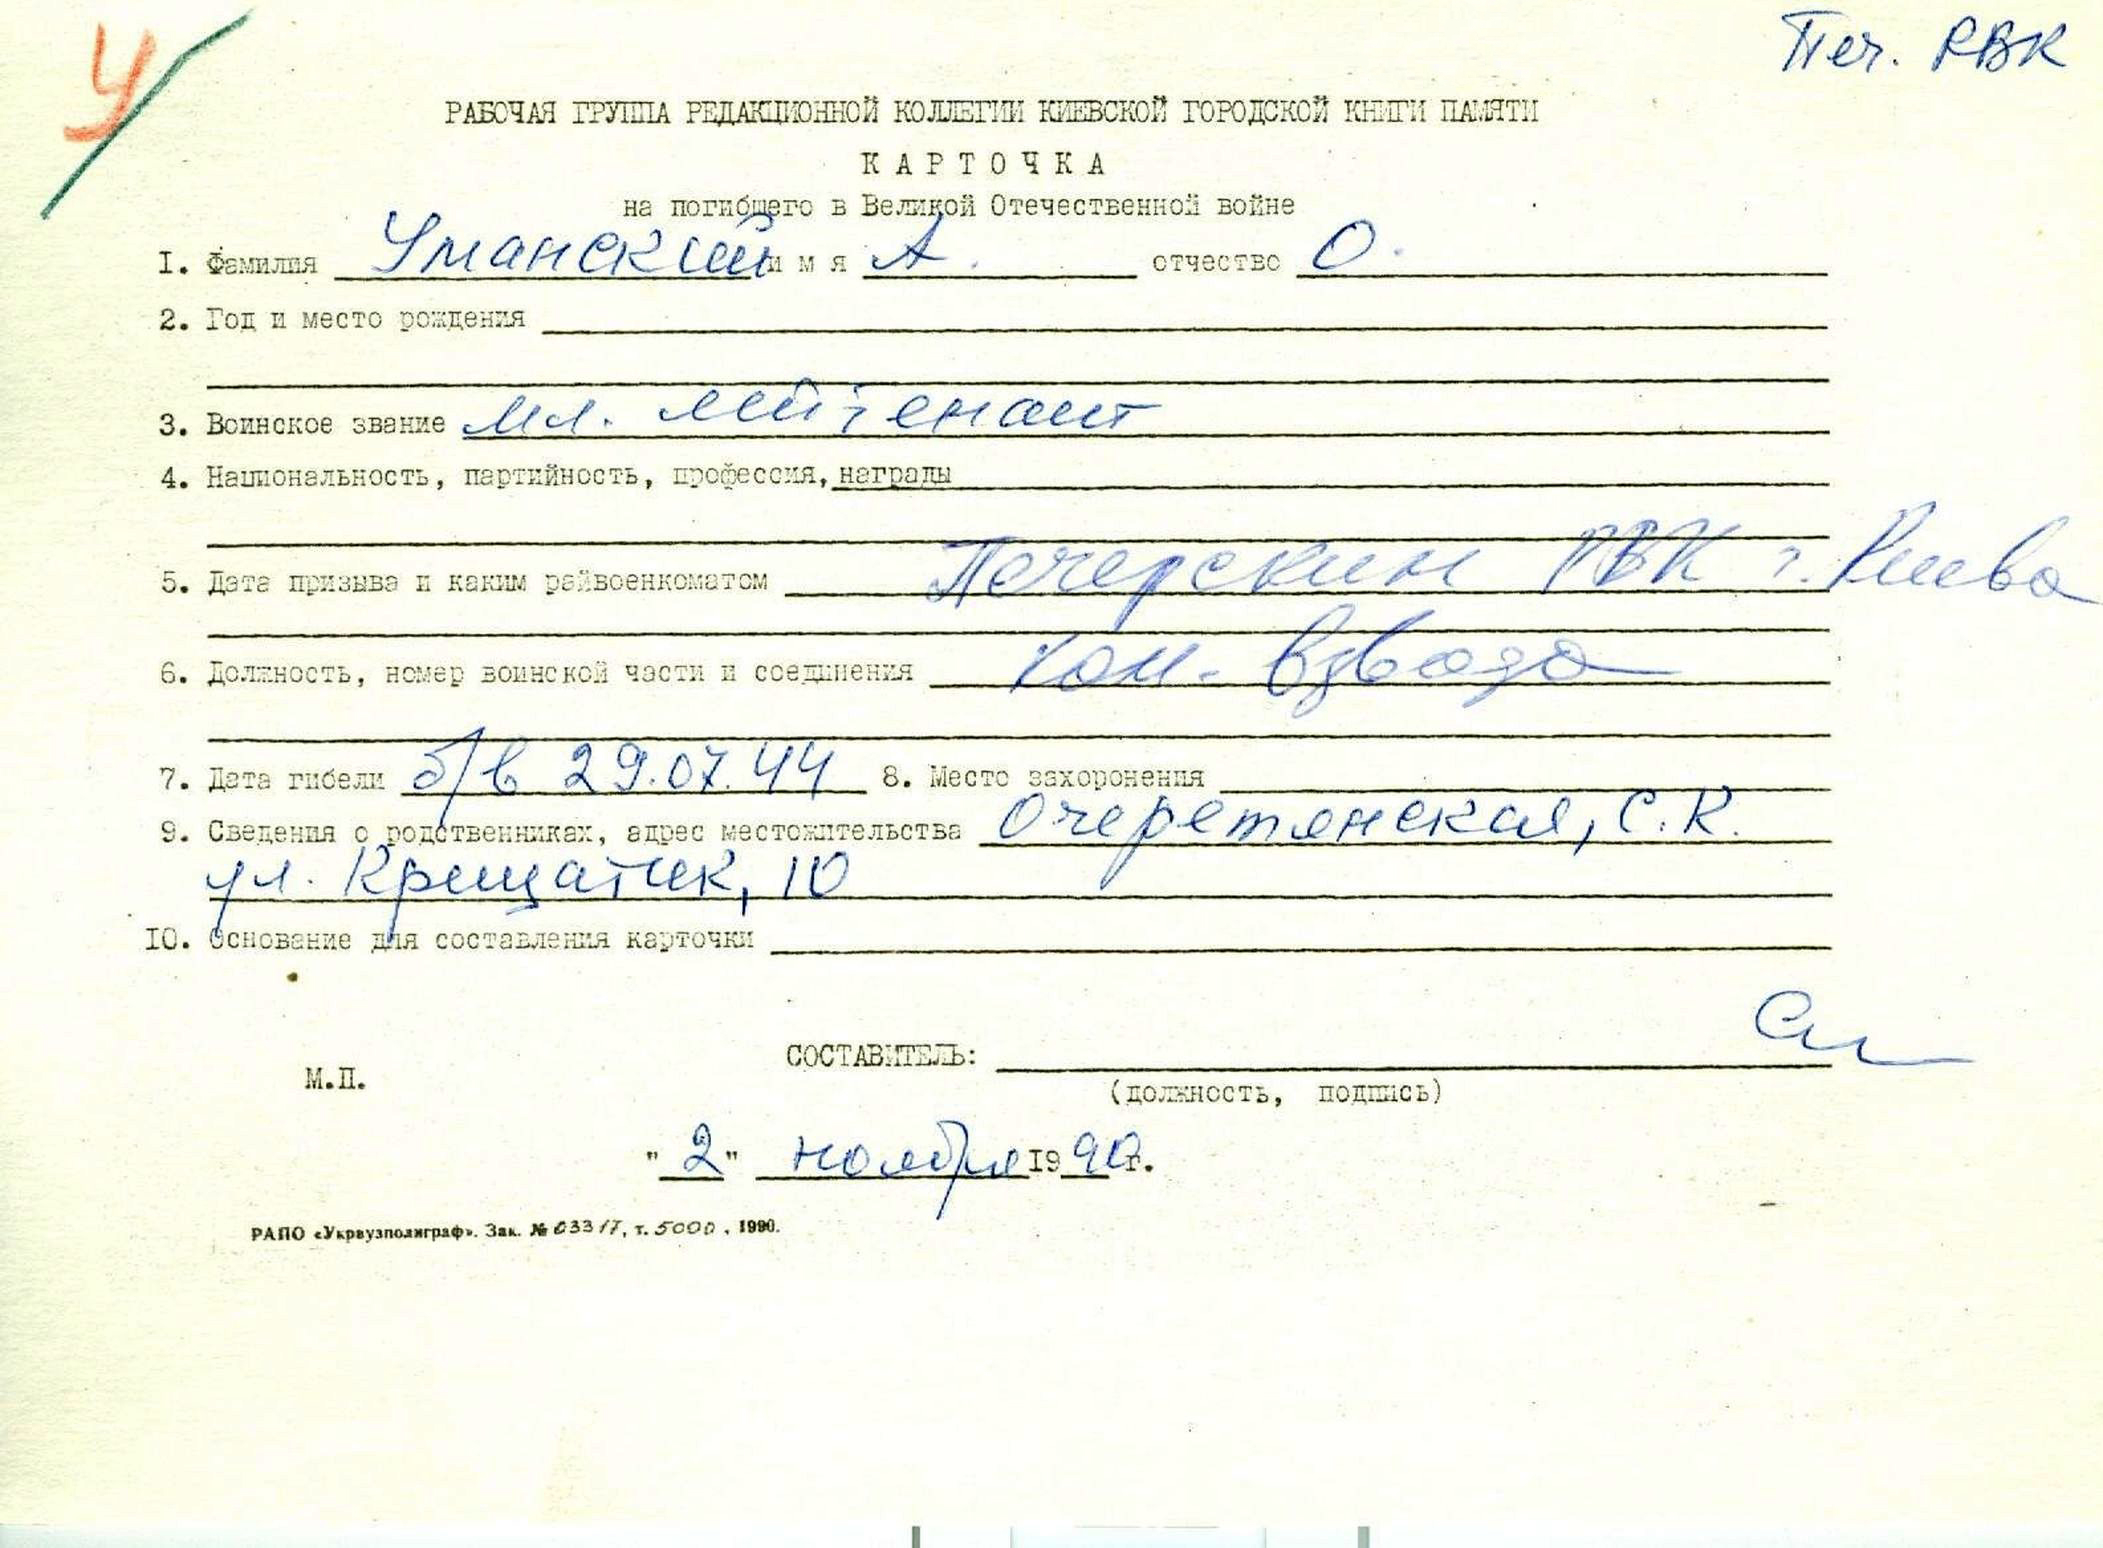 У
Печ. РВК
РАБОЧАЯ ГРУППА РЕДАКЦИОННОЙ КОЛЛЕГИИ КИЕВСКОЙ ГОРОДСКОЙ КНИГИ ПАМЯТИ
КАРТОЧКА
на погибшего в Великой Отечественной войне
I. Фамилия Уманский имя А. отчество О.
2. Год и место рождения
3. Воинское звание мл. лейтенант
4. Национальность, партийность, профессия, награды
5. Дата призыва и каким райвоенкоматом Печерским РВК г. Киева
6. Должность, номер воинской части и соединения ком. взвода
7. Дата гибели б/в 29.07.44 8. Место захоронения
9. Сведения о родственниках, адрес местожительства Очеретянская, С.К.
ул. Крещатик, 10
10. Основание для составления карточки
СОСТАВИТЕЛЬ:
М.П.
(должность, подпись)
"2" ноября 1990г.
РАПО «Укрвузполиграф». Зак. № 03317, т. 5000, 1990.